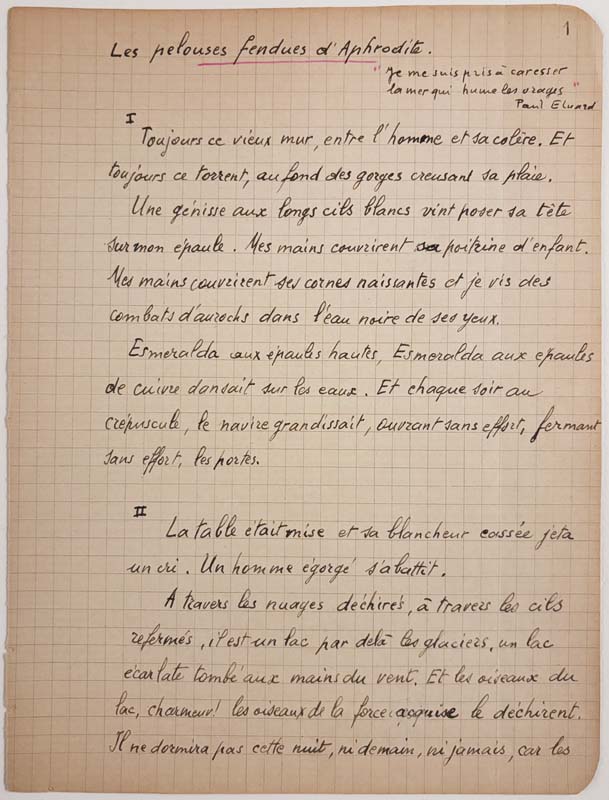 1
Les pelouses fendues d'Aphrodite.
"Je me suis pris à caresser
la mer qui hume les orages"
Paul Eluard
I
Toujours ce vieux mur, entre l'homme et sa colère. Et
toujours ce torrent, au fond des gorges creusant sa plaie.
Une génisse aux longs cils blancs vint poser sa tête
sur mon épaule. Mes mains couvrirent sa poitrine d'enfant.
Mes mains couvrirent ses cornes naissantes et je vis des
combats d'aurochs dans l'eau noire de ses yeux.
Esmeralda aux épaules hautes, Esmeralda aux épaules
de cuivre dansait sur les eaux. Et chaque soir au
crépuscule, le navire grandissait, ouvrant sans effort, fermant
sans effort, les portes.
II
La table était mise et sa blancheur cassée jeta
un cri. Un homme égorgé s'abattit.
A travers les nuages déchirés, à travers les cils
refermés, il est un lac par delà les glaciers, un lac
écarlate tombé aux mains du vent. Et les oiseaux du
lac, charmeur! les oiseaux de la force acquise le déchirent.
Il ne dormira pas cette nuit, ni demain, ni jamais, car les